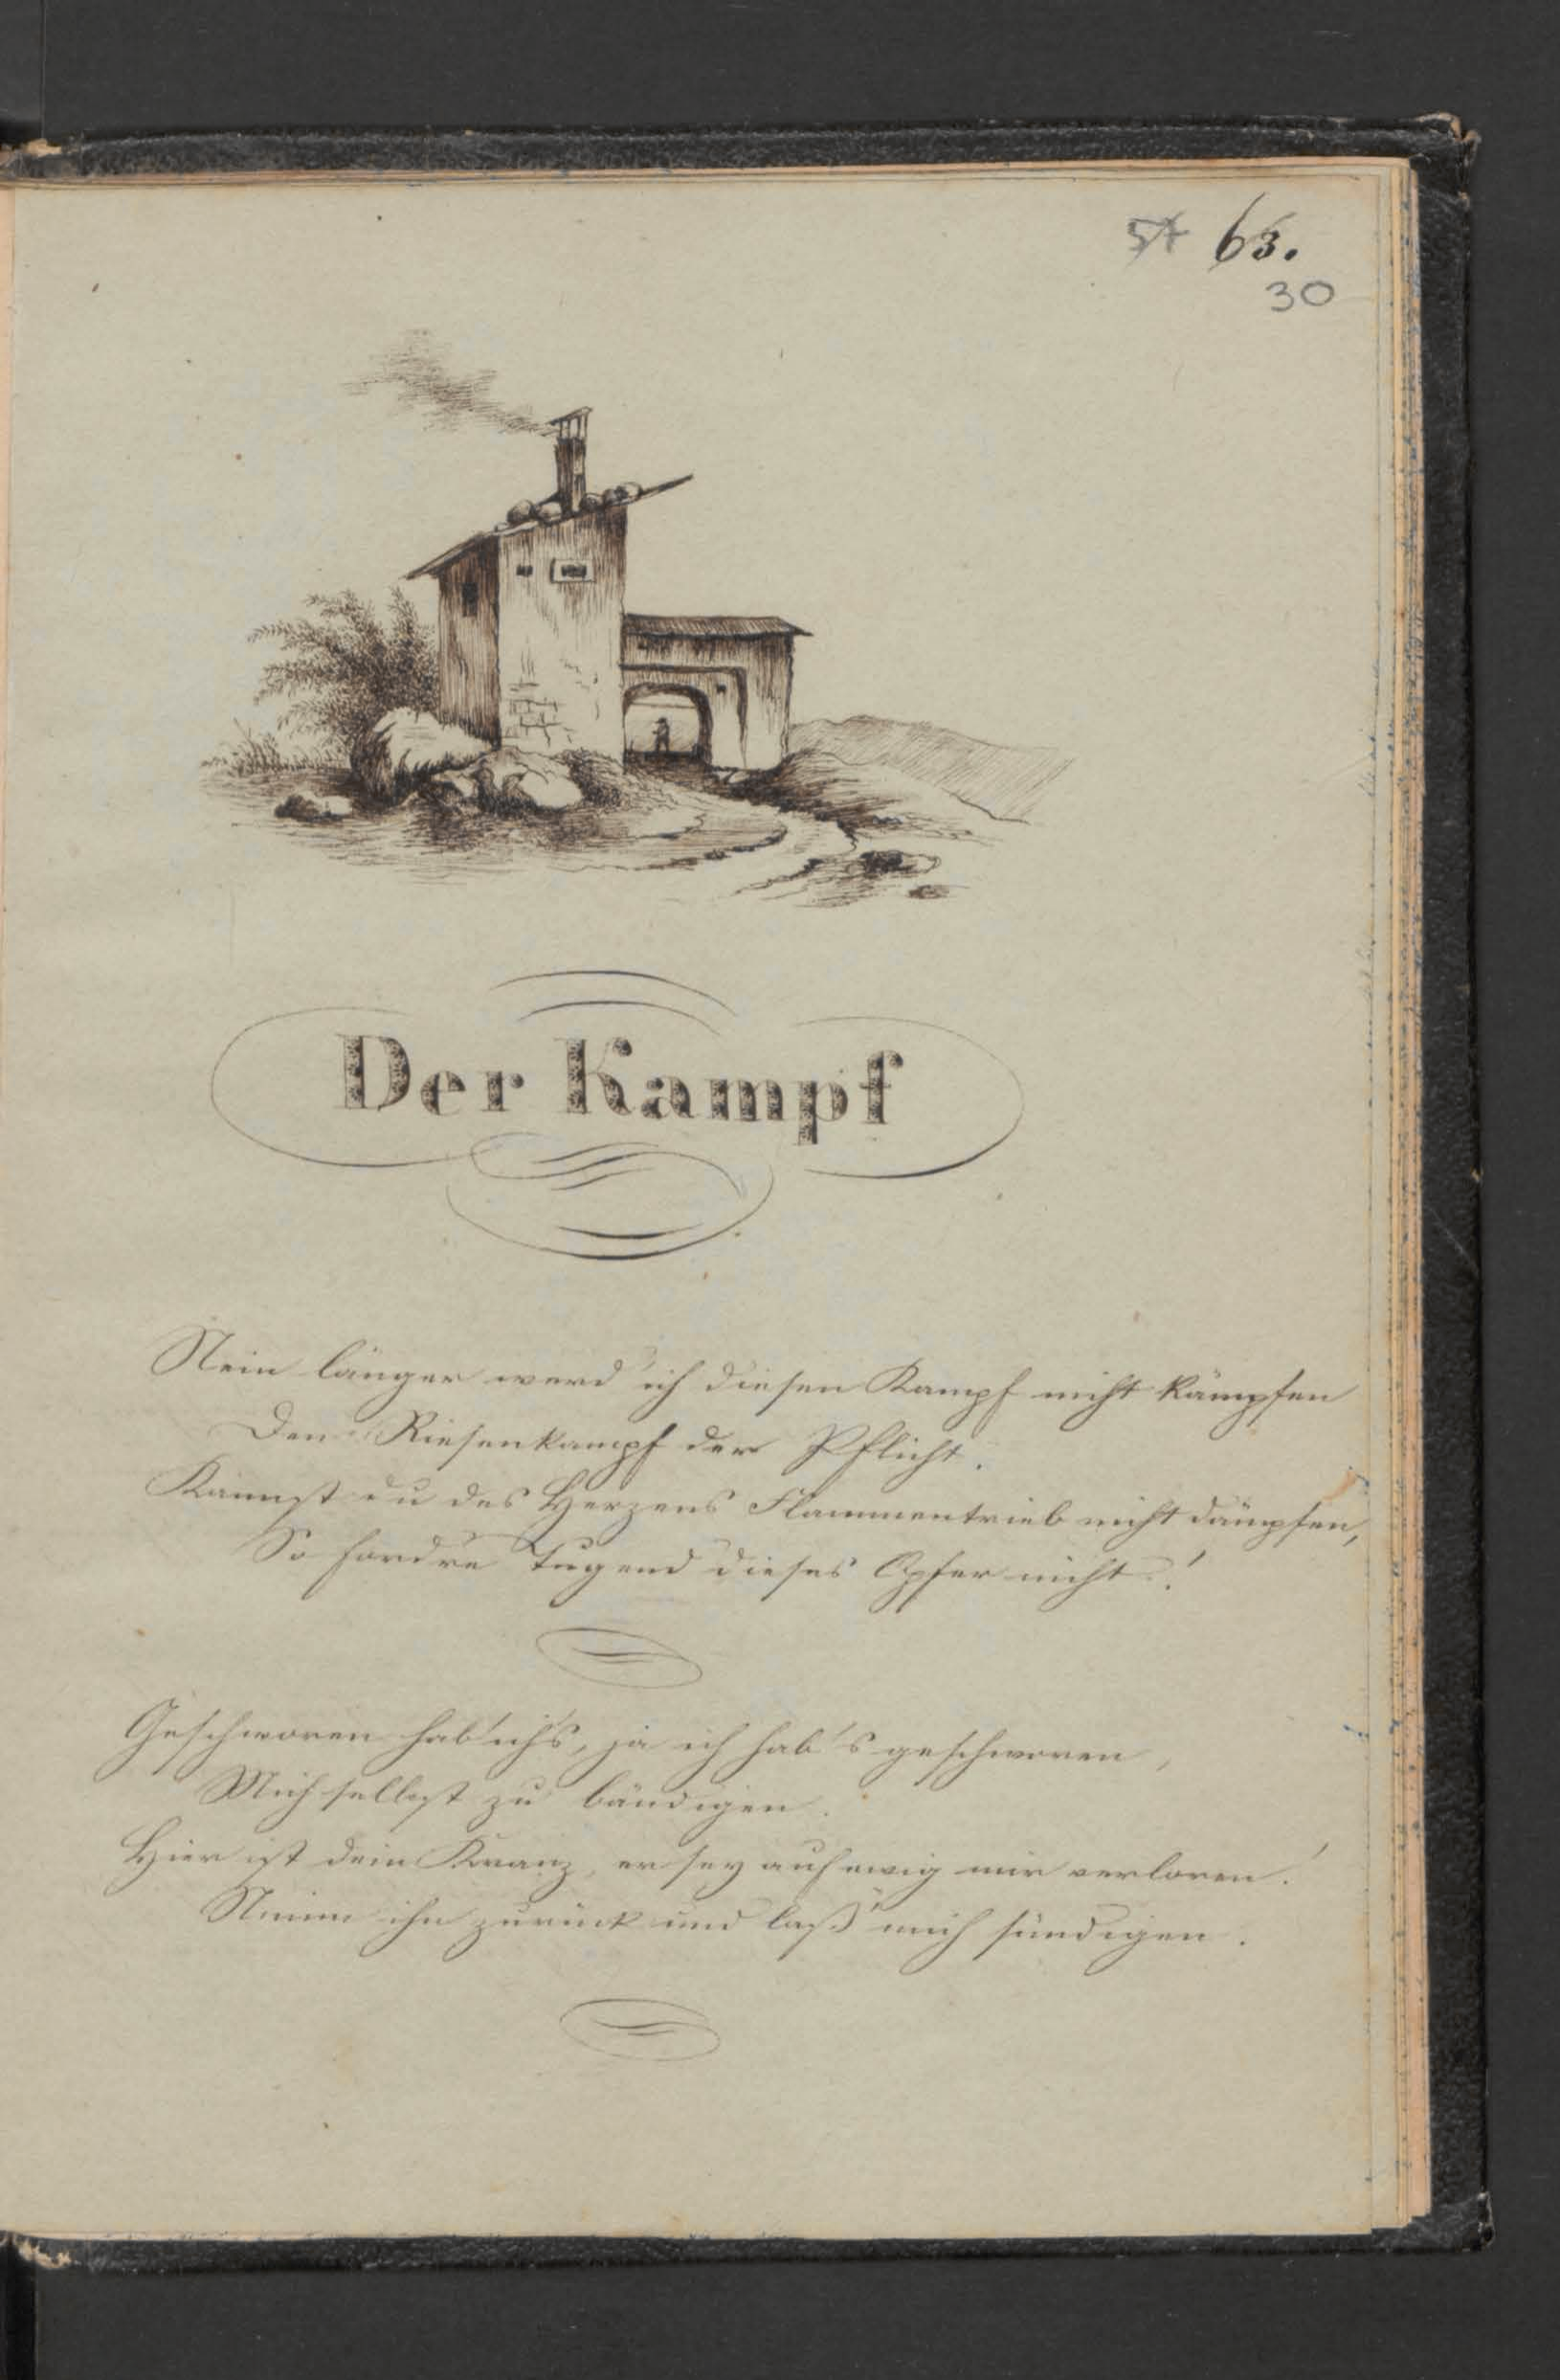 57 63.
30
Der Kampf
Nein länger werd' ich diesen Kampf nicht kämpfen
Den Riesenkampf der Pflicht.
Kannst du des Herzens Flammentrieb nicht dämpfen,
So fordre Tugend dieses Opfer nicht!
Geschworen hab' ich's, ja ich hab's geschworen,
Mich selbst zu bändigen.
Hier ist dein Kranz, er sey auf ewig mir verloren!
Nimm ihn zurück und laß mich sündigen.